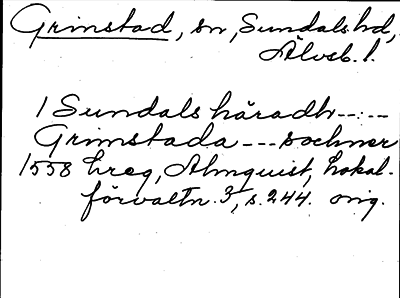 Grimstad, sn, Sundals hd,
Älvsb. l.
I Sundals häradh --:--
Grimstada --- sochner
1558 hreg, Almquist, Lokal-
förvaltn. 3, s. 244. orig.